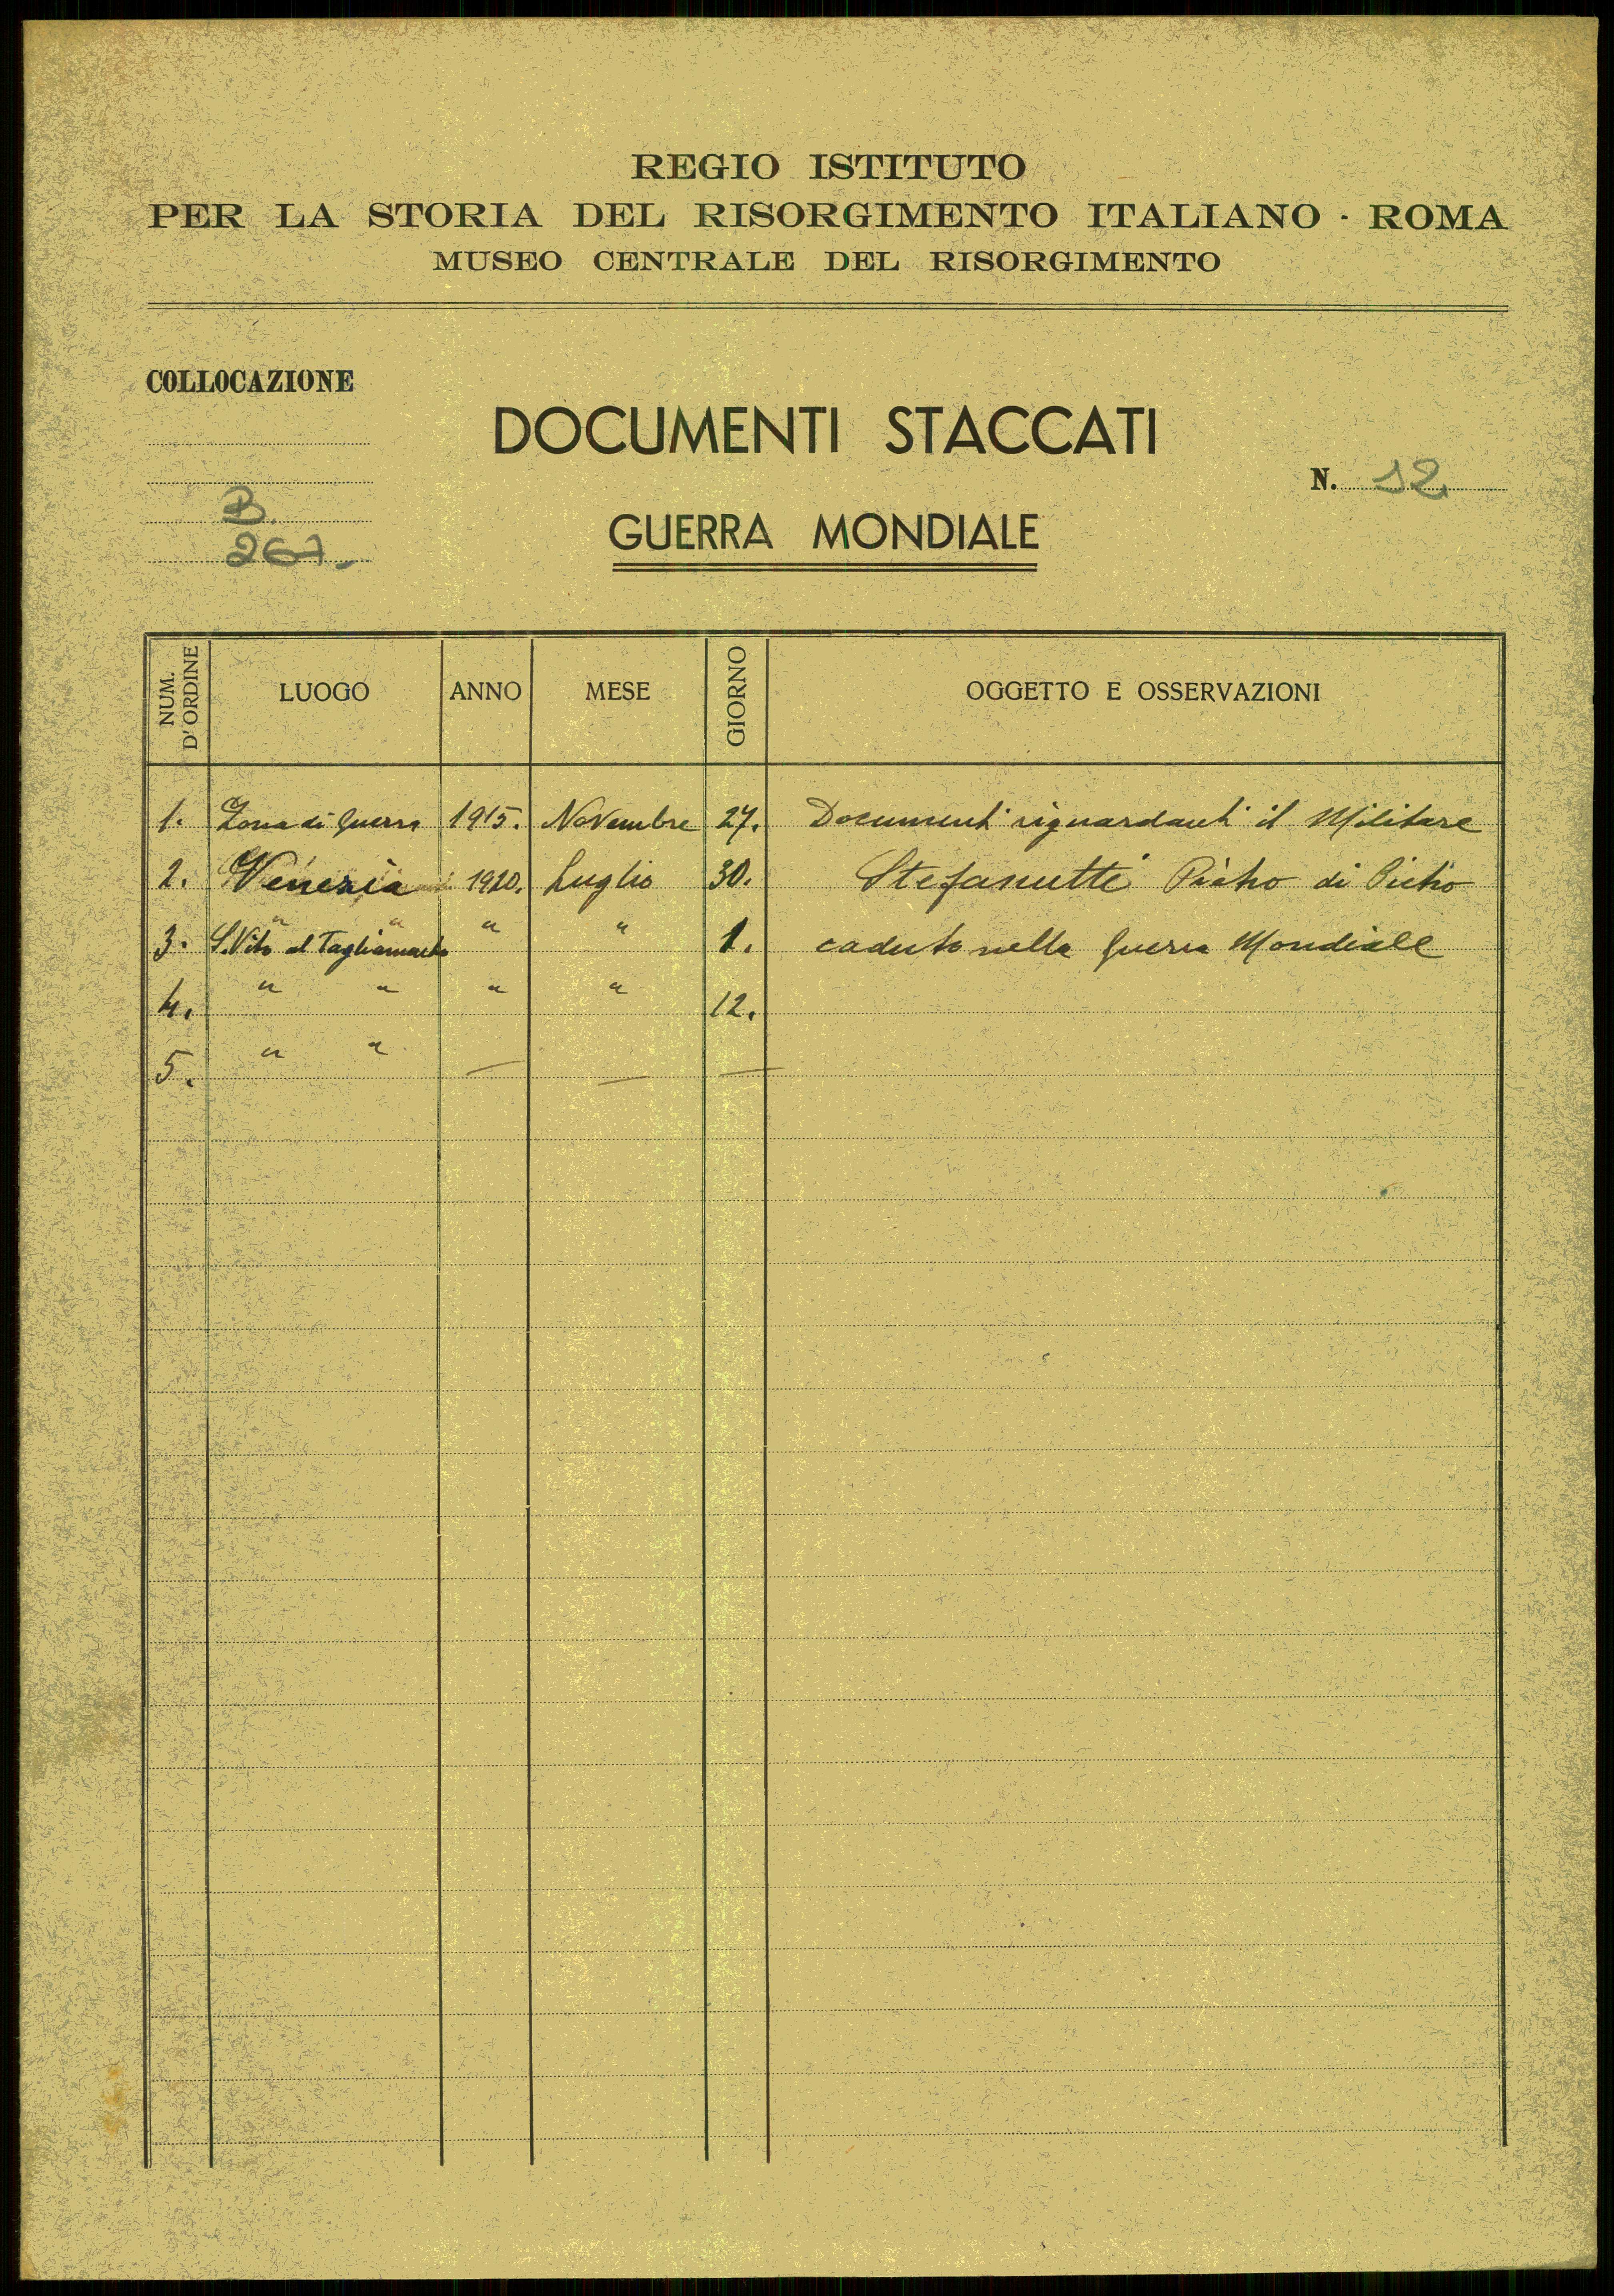 REGIO ISTITUTO
PER LA STORIA DEL RISORGIMENTO ITALIANO · ROMA
MUSEO CENTRALE DEL RISORGIMENTO
COLLOCAZIONE
DOCUMENTI STACCATI
N. 12
B.
GUERRA MONDIALE
267.
NUM. D'ORDINE LUOGO ANNO MESE GIORNO OGGETTO E OSSERVAZIONI
1. Zona di Guerra 1915. Novembre 27. Documenti riguardanti il Militare
2. Venezia 1920. Luglio 30. Stefanutti Pietro di Pietro
" "
3. S. Vito al Tagliamento " " 1. caduto nella Guerra Mondiale
4. " " " " 12.
5. " " — — —